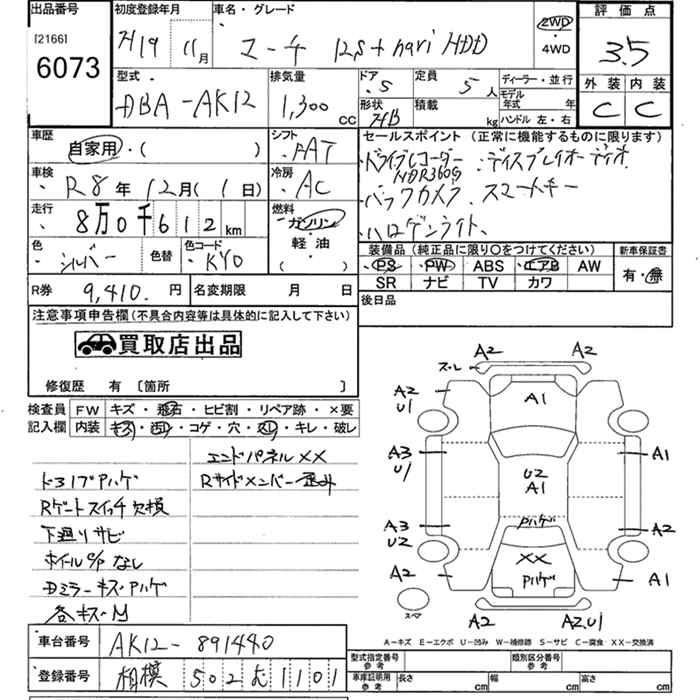 出品番号 初度登録年月 車名・グレード 評価点
[2166]
6073
H19 11月 マーチ 12S+naviHDD 2WD・4WD 3.5
型式 排気量 ドア 定員 ディーラー・並行
DBA-AK12 1,300CC 5 5人 モデル年式 年
形状 積載 外装 内装
HB kg ハンドル 左・右 C C
車歴 シフト セールスポイント(正常に機能するものに限ります)
自家用・( ) FAT ・ドライブレコーダー ・ディスプレイオーディオ
車検 冷房 NDR360G
R8年12月(1日) AC ・バックカメラ スマートキー
走行 燃料 ・ハロゲンライト
8万0千612km ガソリン
色 色替 色コード 軽油 装備品(純正品に限り○をつけてください) 新車保証書
シルバー KY0 ( ) PS PW ABS エアB AW 有・無
SR ナビ TV カワ
R券 9,410.円 名変期限 月 日 後日品
注意事項申告欄(不具合内容等は具体的に記入して下さい)
買取店出品
修復歴 有 [箇所 ]
検査員 FW キズ・飛石・ヒビ割・リペア跡・×要
記入欄 内装 キズ・凹レ・コゲ・穴・スレ・キレ・破レ
エンドパネルXX
ドヨブPハゲ Rサイドメンバー歪み
Rゲートスイッチ欠損
下廻りサビ
ホイールC/Pなし
Dミラーキズ・Pハゲ
各キズ・M
A2 A2
ズレ
A2 U1 A1
A3 U1 A1
U2 A1
A3 U2 Pハゲ A2
A2 XX A1
Pハゲ
スペア A2 A2.U1
A-キズ E-エクボ U-凹み W-補修跡 S-サビ C-腐食 XX-交換済
車台番号 AK12-891440
型式指定番号 参考 類別区分番号 参考
登録番号 相模 502 む 1101
車庫証明用 参考 長さ cm 幅 cm 高さ cm